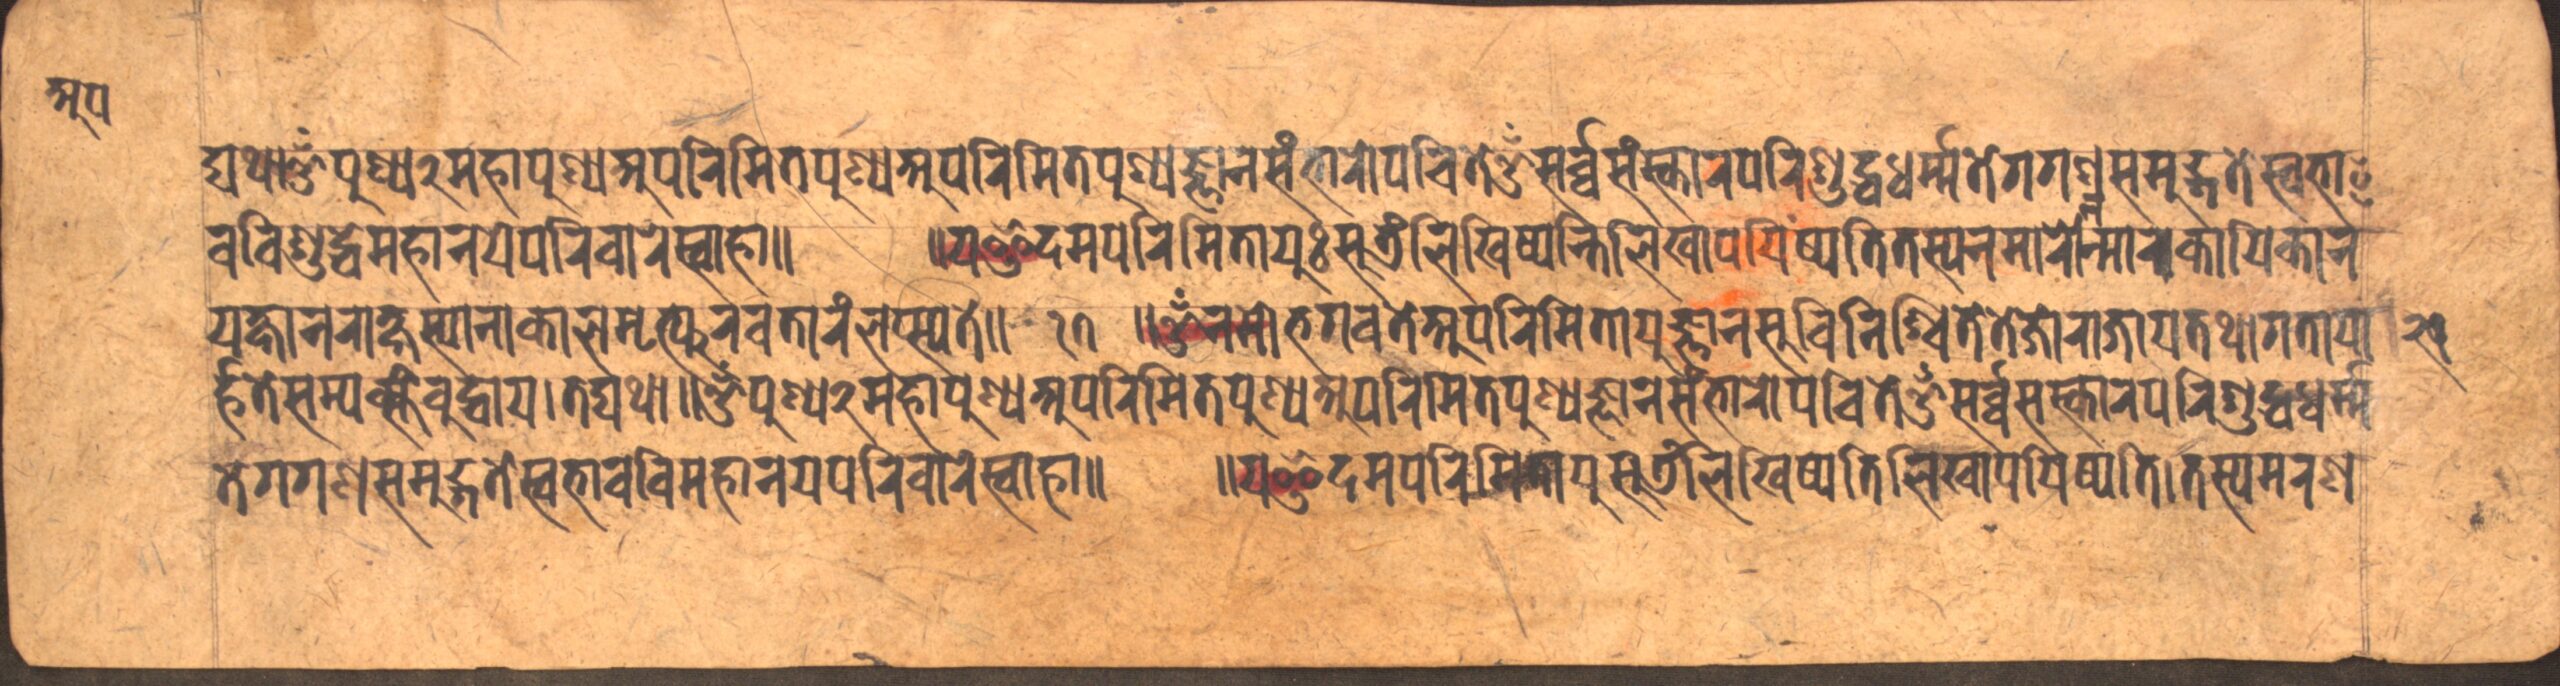 अप
द्यथा ॐ पुण्य २ महापुण्य अपरिमितपुण्य अपरिमितपुण्यज्ञानसंभारोपचिते ॐ सर्व्वसंस्कारपरिशुद्धधर्म्मते गगणसमुद्गते स्वभा
वविशुद्धे महानयेपरिवारे स्वाहा॥ ॥य इदमपरिमितायुः सूत्रं लिखिष्यन्ति लिखापयिष्यति तस्य न मारो न्न मारकायिका न
यक्षा न राक्षस्या नाकालमृत्युरवतारं लप्स्यते॥ १७ ॥ॐ नमो भगवते अपरिमितायुज्ञानसुविनिश्चिततेजोराजाय तथागताया
र्हते सम्यक्संबुद्धाय। तद्यथा॥ ॐ पुण्य २ महापुण्य अपरिमितपुण्य अपरिमितपुण्यज्ञानसंभारोपचिते ॐ सर्व्वसंस्कारपरिशुद्धधर्म्म
ते गगणसमुद्गते स्वभाववि महानयपरिवारे स्वाहा॥ ॥य इदमपरिमितायु सूत्रं लिखिष्यति लिखापयिष्यति। तस्य मरण